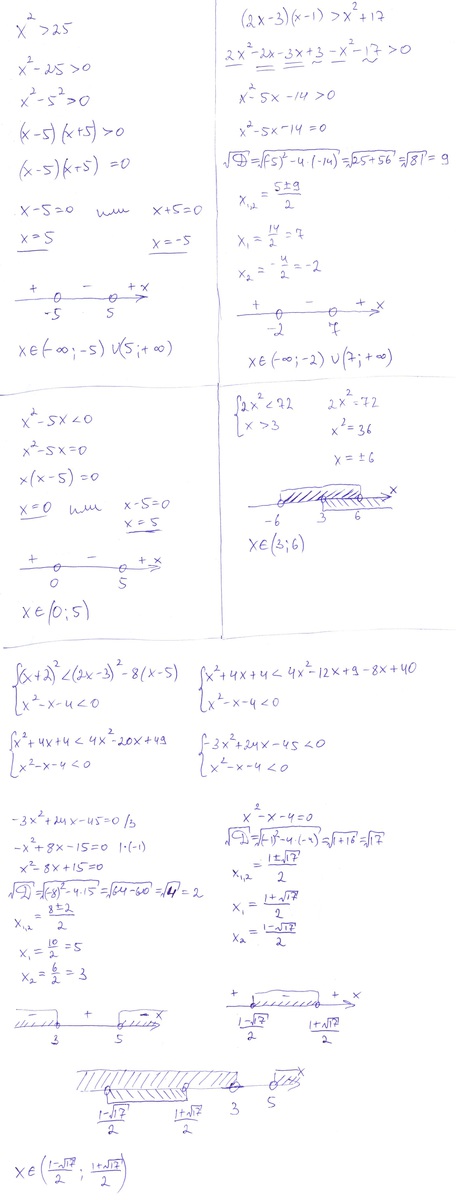 x² > 25
x² - 25 > 0
x² - 5² > 0
(x-5)(x+5) > 0
(x-5)(x+5) = 0
x-5=0 или x+5=0
x=5 x=-5
+ - + x
-5 5
x∈(-∞;-5)∪(5;+∞)
(2x-3)(x-1) > x²+17
2x²-2x-3x+3-x²-17>0
x²-5x-14>0
x²-5x-14=0
√D=√(-5)²-4·(-14)=√25+56=√81=9
x₁,₂=5±9/2
x₁=14/2=7
x₂=-4/2=-2
+ - + x
-2 7
x∈(-∞;-2)∪(7;+∞)
x²-5x<0
x²-5x=0
x(x-5)=0
x=0 или x-5=0
x=5
+ - + x
0 5
x∈(0;5)
{2x²<72 2x²=72
x>3 x²=36
x=±6
x
-6 3 6
x∈(3;6)
{(x+2)²<(2x-3)²-8(x-5)
x²-x-4<0
{x²+4x+4<4x²-12x+9-8x+40
x²-x-4<0
{x²+4x+4<4x²-20x+49
x²-x-4<0
{-3x²+24x-45<0
x²-x-4<0
-3x²+24x-45=0 /3
-x²+8x-15=0 |·(-1)
x²-8x+15=0
√D=√(-8)²-4·15=√64-60=√4=2
x₁,₂=8±2/2
x₁=10/2=5
x₂=6/2=3
- + - x
3 5
x²-x-4=0
√D=√(-1)²-4·(-4)=√1+16=√17
x₁,₂=1±√17/2
x₁=1+√17/2
x₂=1-√17/2
+ - + x
1-√17/2 1+√17/2
x
1-√17/2 1+√17/2 3 5
x∈(1-√17/2; 1+√17/2)